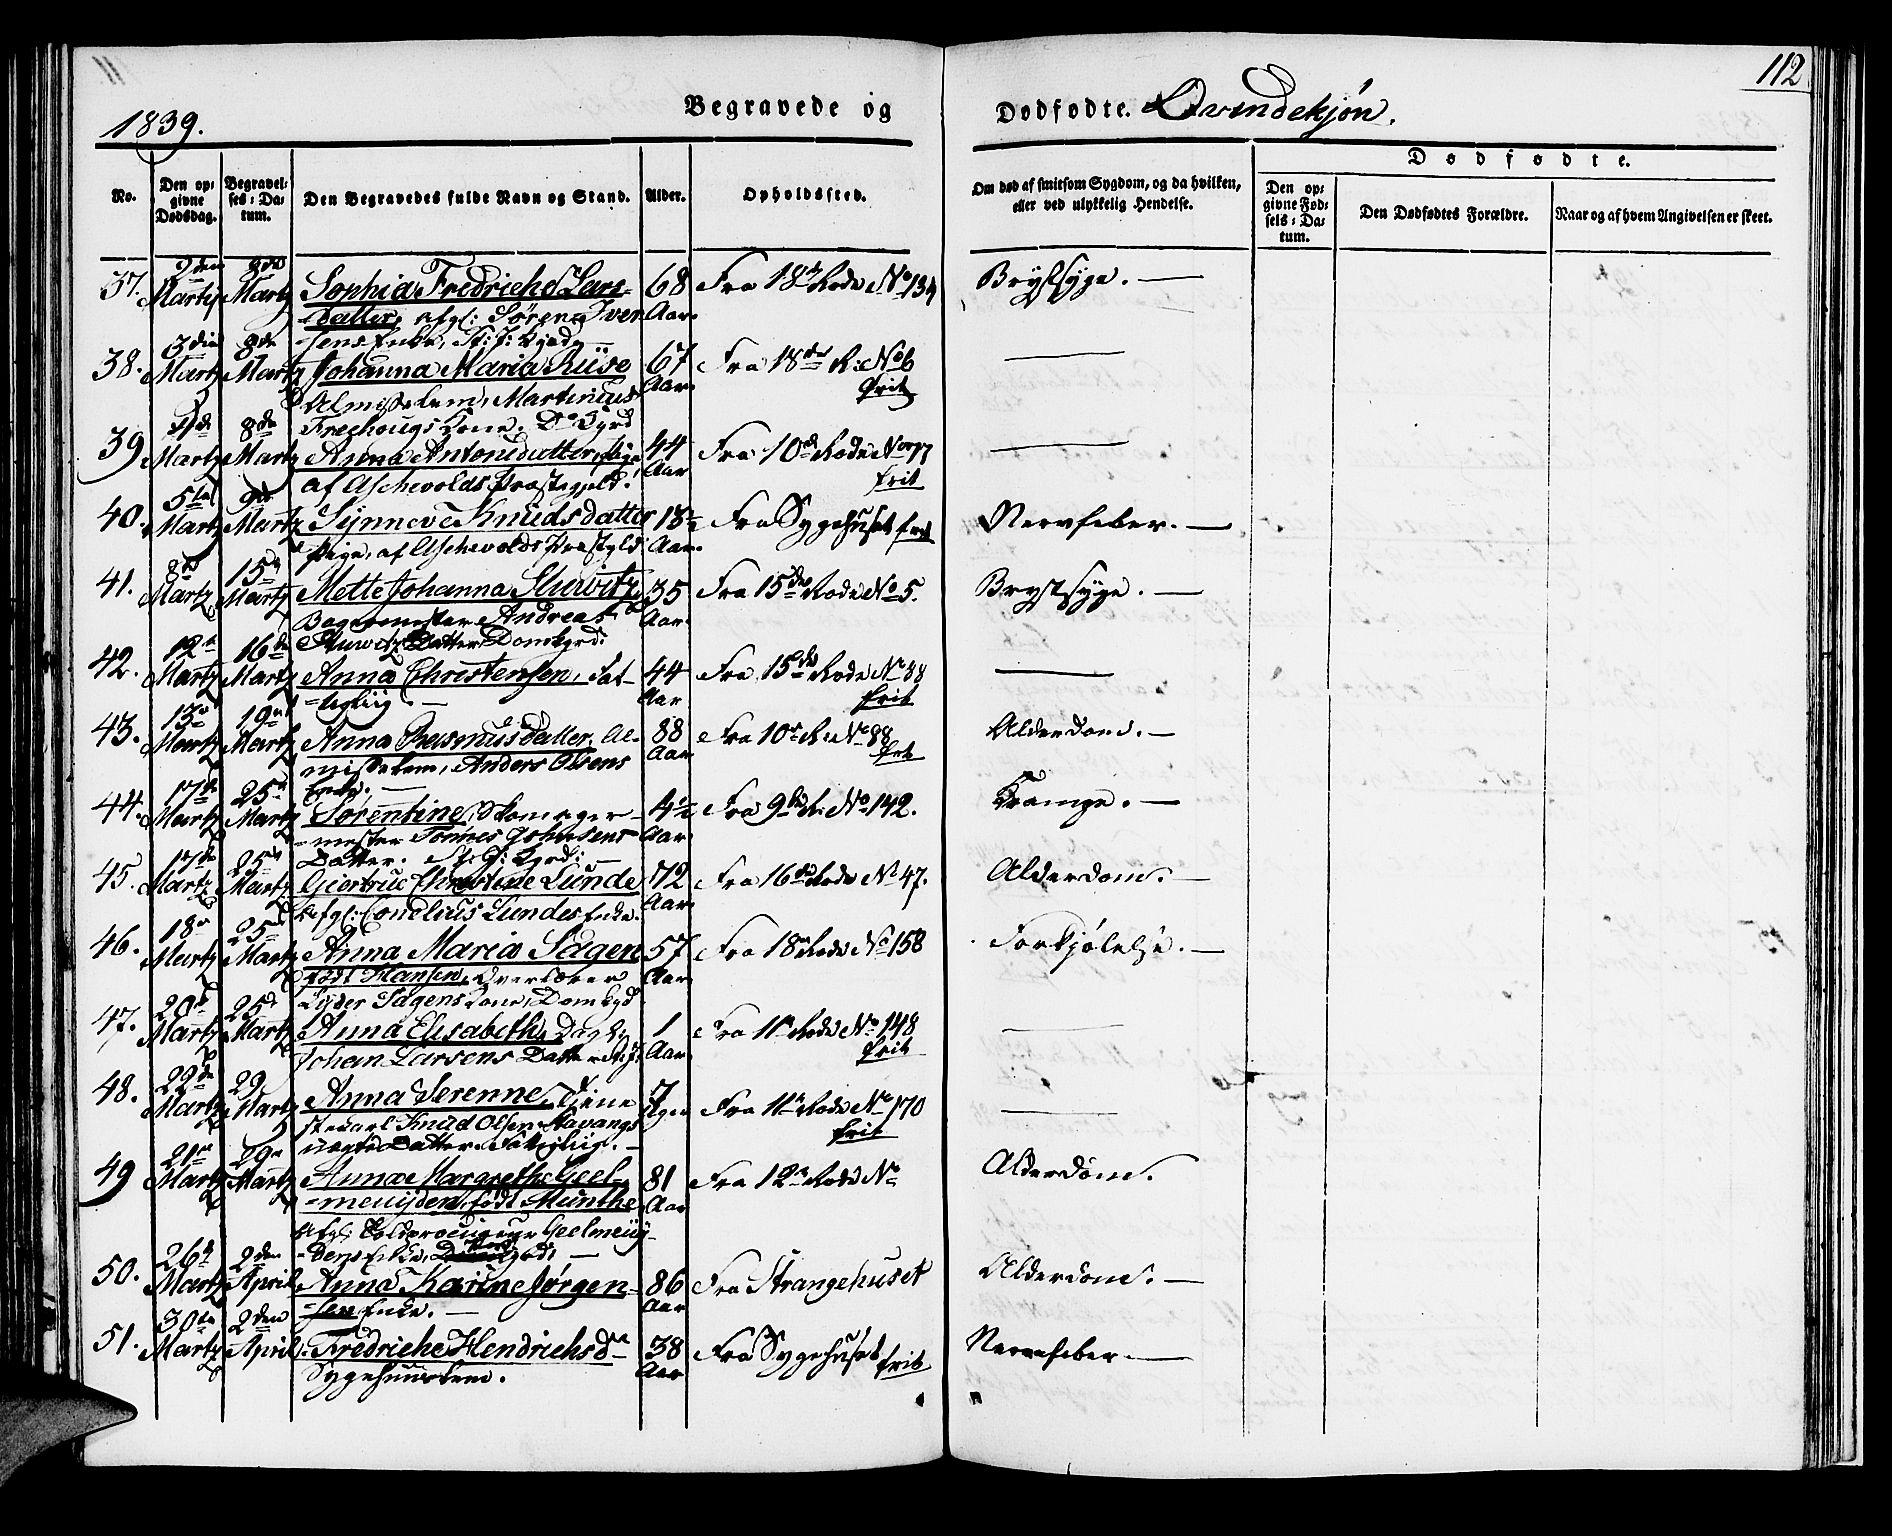 112
1839.
Begravede og Dødfødte. Qvindekjøn.
No.
Den opgivne Dødsdag.
Begravelses-Datum.
Den Begravedes fulde Navn og Stand.
Alder.
Opholdssted.
Om død af smitsom Sygdom, og da hvilken, eller ved ulykkelig Hendelse.
Dødfødte.
Den opgivne Fødsels-Datum.
Den Dødfødtes Forældre.
Naar og af hvem Angivelsen er skeet.
37. 2den Martz 8de Martz Sophia Fredriche Lars- 68 Aar Fra 18de Rode No 134 Brystsyge.
datter, afgl: Søren Iver
sens Enke,
38. 3die Martz 8de Martz Johanna Maria Riise 67 Aar Fra 18de R: No 6 frit
Almisselem, Martinius
Kone.
39 Martz 8de Martz Anna Antonsdatter, Pige 44 Aar Fra 10de Rode No 77 frit
af Aschevolds Præstegjeld.
40. 5te Martz 9de Martz Synneve Knudsdatter 18½ Aar Fra Sygehuset frit Nervefeber.
Pige, af Aschevolds Præstgld
41. 8de Martz 15de Martz Mette Johanna Sturvitz 35 Aar Fra 15de Rode No 5. Brystsyge.
Bagermester Andreas
Sturvitz Datter Domkgrd:
42. 12te Martz 16de Martz Anna Christensen, Fat- 44 Aar Fra 15de Rode No 88 frit
tiglig.
43. 13de Martz 19de Martz Anna Rasmusdatter, Al- 88 Aar Fra 10de R: No 88 frit Alderdom.
misselem, Anders Olsens
Enke.
44. 17de Martz 25de Martz Sørentine, Skomager- 4½ Aar Fra 9de R: No 142. Krampe.
mester Tønnes Johnsens
Datter.
45. 17de Martz 25de Martz Giertrue Christine Lunde 72 Aar Fra 16de Rode No 47. Alderdom.
afgl: Conelius Lundes Enke.
46. 18de Martz 25de Martz Anna Maria Sagen 57 Aar Fra 18de Rode No 158 Forkjølelse.
født Hansen, Overlærer
Lyder Sagens Kone, Domkgd
47. 20de Martz 25de Martz Anna Elisabeth, Dagl: 1 Aar Fra 11te Rode No 148 frit
Johan Larsens Datter
48. 22de Martz 29 Martz Anna Serenne, Tjene 7 Uger Fra 11te Rode No 170 frit
stekarl Knud Olsen Stavangs
Datter. Fattiglig.
49 21de Martz 29de Martz Anna Margrethe Geel- 81 Aar Fra 12te Rode No Alderdom.
meuijden, født Münthe
afgl: Geelmeuij-
dens Enke,
50. 26de Martz 2den April Anna Karine Jørgen- 86 Aar Fra Strangehuset Alderdom.
sen Enke.
51. 30te Martz 2den April Fredriche Hendrichsdr 38 Aar Fra Sygehuset frit Nervefeber.
Sygehuuslem.